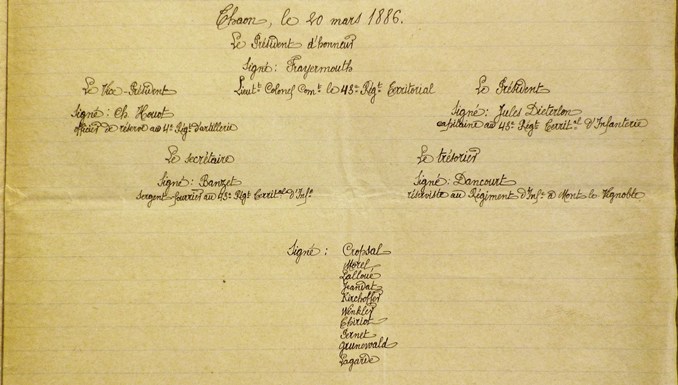 Thaon, le 20 mars 1886.
Le Président d'honneur
Signé: Frayermouth
Lieut.t Colonel Com.t le 43e Rég.t Territorial
Le Vice-Président
Signé: Ch. Houot
officier de réserve au 4e Rég.t d'artillerie
Le Président
Signé: Jules Dieterlen
capitaine au 43e Rég.t Territ.al d'Infanterie
Le secrétaire
Signé: Banzet
sergent fourrier au 43e Rég.t Territ.al d'Inf.e
Le trésorier
Signé: Dancourt
réserviste au Régiment d'Inf.e à Mont le Vignoble
Signé: Cropsal
Morel
Lalloué
Jeandat
Kirchoffer
Winkler
Thiriot
Fernet
Grunewald
Lagarde